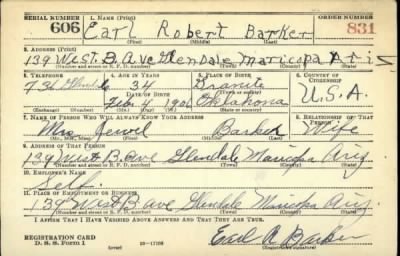 SERIAL NUMBER 1. NAME (Print) ORDER NUMBER
606 Earl Robert Barker 831
(First) (Middle) (Last)
2. ADDRESS (Print)
139 West B. Ave Glendale Maricopa Ariz
(Number and street or R. F. D. number) (Town) (County) (State)
3. TELEPHONE 4. AGE IN YEARS 5. PLACE OF BIRTH 6. COUNTRY OF CITIZENSHIP
736 Glendale 34 Granite
DATE OF BIRTH
Feb 4 1906 Oklahoma U.S.A.
(Exchange) (Number) (Mo.) (Day) (Yr.) (State or country)
7. NAME OF PERSON WHO WILL ALWAYS KNOW YOUR ADDRESS 8. RELATIONSHIP OF THAT PERSON
Mrs Jewel Barker Wife
(Mr., Mrs., Miss) (First) (Middle) (Last)
9. ADDRESS OF THAT PERSON
139 West B. ave Glendale Maricopa Ariz
(Number and street or R. F. D. number) (Town) (County) (State)
10. EMPLOYER'S NAME
Self
11. PLACE OF EMPLOYMENT OR BUSINESS
139 West B ave Glendale Maricopa Ariz.
(Number and street or R. F. D. number) (Town) (County) (State)
I AFFIRM THAT I HAVE VERIFIED ABOVE ANSWERS AND THAT THEY ARE TRUE.
REGISTRATION CARD
D. S. S. Form 1 (over) 16-17105 Earl R. Barker
(Registrant's signature)